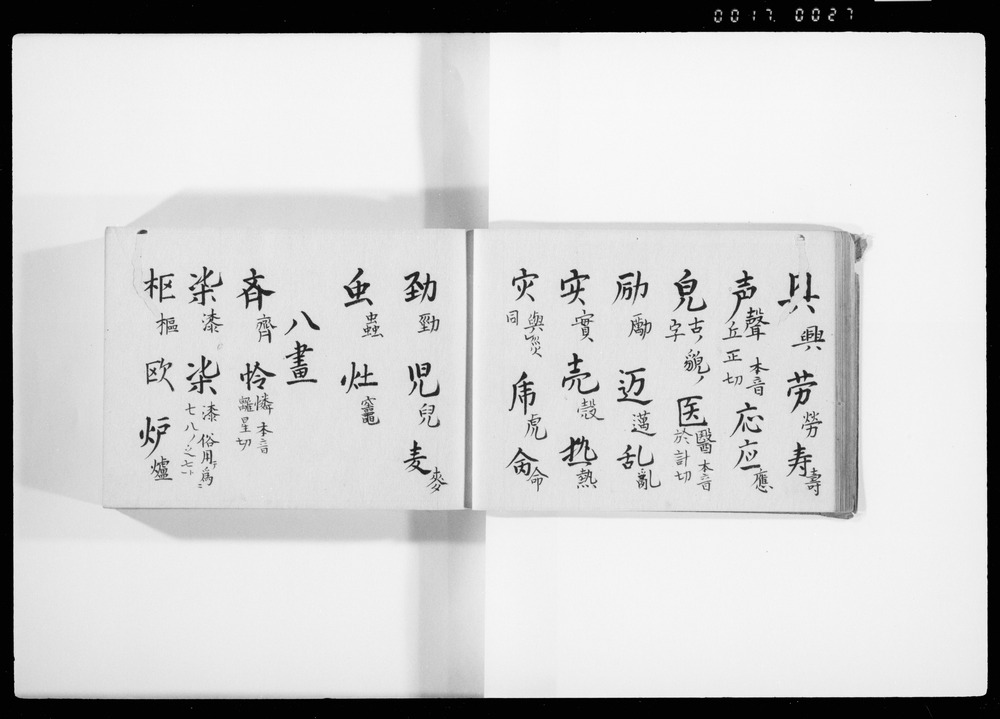 0017 0027
兴 興 劳 勞 寿 壽
声 聲 本音丘正切 応 应 應
皃 古貌ノ字 医 醫 本音於計切
励 勵 迈 邁 乱 亂
实 實 壳 殼 热 熱
灾 與災同 乕 虎 肏 命
劲 勁 児 兒 麦 麥
虫 蟲 灶 竈
八畫
斉 齊 怜 憐 本音離星切
柒 漆 柒 漆 俗用テ為ニ七八ノ之七ト
枢 樞 欧 炉 爐